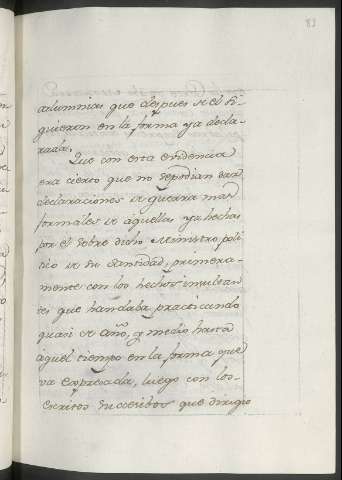 83
calumnias que despues se el si-
guieron en la forma ya decla-
rada.
Que con esta evidencia
era cierto que no se podian dar
declaraciones de guerra mas
formales de aquellas ya hechas
por el sobre dicho Ministro poli-
tico de su Santidad, primera-
mente con los hechos
tes que handaba practicando
quasi de año, y medio hasta
aquel tiempo en la forma que
va expresada, luego con los
escritos que dirigio